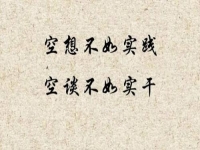 空想不如实践
空谈不如实干